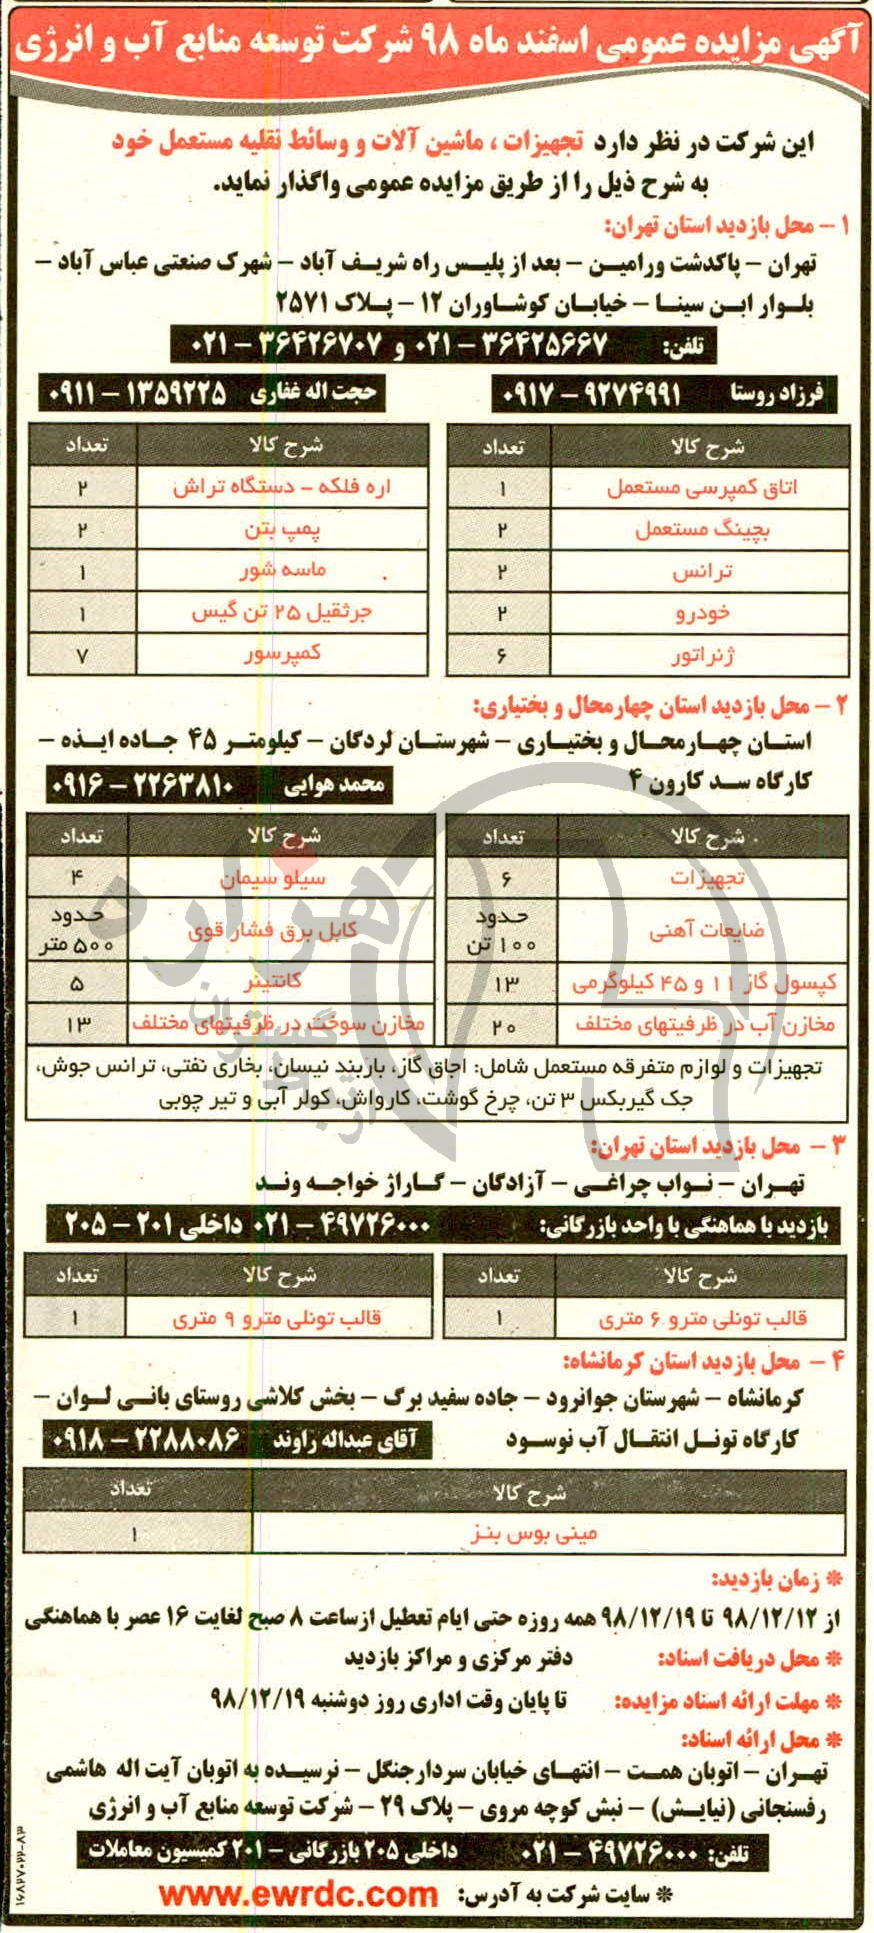 آگهی مزایده عمومی اسفند ماه ۹۸ شرکت توسعه منابع آب و انرژی
این شرکت در نظر دارد تجهیزات ، ماشین آلات و وسائط نقلیه مستعمل خود
به شرح ذیل را از طریق مزایده عمومی واگذار نماید.
۱ – محل بازدید استان تهران:
تهران – پاکدشت ورامین – بعد از پلیس راه شریف آباد – شهرک صنعتی عباس آباد –
بلوار ابن سینا – خیابان کوشاوران ۱۲ – پلاک ۲۵۷۱
تلفن: ۳۶۴۲۵۶۶۷ – ۰۲۱ و ۳۶۴۲۶۷۰۷ – ۰۲۱
فرزاد روستا ۹۲۷۴۹۹۱ – ۰۹۱۷
حجت اله غفاری ۱۳۵۹۲۲۵ – ۰۹۱۱
شرح کالا تعداد
اتاق کمپرسی مستعمل ۱
بچینگ مستعمل ۲
ترانس ۲
خودرو ۲
ژنراتور ۶
شرح کالا تعداد
اره فلکه – دستگاه تراش ۲
پمپ بتن ۲
ماسه شور ۱
جرثقیل ۲۵ تن گیس ۱
کمپرسور ۷
۲ – محل بازدید استان چهارمحال و بختیاری:
استان چهارمحال و بختیاری – شهرستان لردگان – کیلومتر ۴۵ جاده ایذه –
کارگاه سد کارون ۴
محمد هوایی ۲۲۶۳۸۱۰ – ۰۹۱۶
شرح کالا تعداد
تجهیزات ۶
ضایعات آهنی حدود ۱۰۰ تن
کپسول گاز ۱۱ و ۴۵ کیلوگرمی ۱۳
مخازن آب در ظرفیتهای مختلف ۲۰
شرح کالا تعداد
سیلو سیمان ۴
کابل برق فشار قوی حدود ۵۰۰ متر
کانتینر ۵
مخازن سوخت در ظرفیتهای مختلف ۱۳
تجهیزات و لوازم متفرقه مستعمل شامل: اجاق گاز، باربند نیسان، بخاری نفتی، ترانس جوش،
جک گیربکس ۳ تن، چرخ گوشت، کارواش، کولر آبی و تیر چوبی
۳ – محل بازدید استان تهران:
تهران – نواب چراغی – آزادگان – گاراژ خواجه وند
بازدید با هماهنگی با واحد بازرگانی: ۴۹۷۲۶۰۰۰ – ۰۲۱ داخلی ۲۰۱ – ۲۰۵
شرح کالا تعداد
قالب تونلی مترو ۶ متری ۱
شرح کالا تعداد
قالب تونلی مترو ۹ متری ۱
۴ – محل بازدید استان کرمانشاه:
کرمانشاه – شهرستان جوانرود – جاده سفید برگ – بخش کلاشی روستای بانی لوان –
کارگاه تونل انتقال آب نوسود
آقای عبداله راوند ۲۲۸۸۰۸۶ – ۰۹۱۸
شرح کالا تعداد
مینی بوس بنز ۱
* زمان بازدید:
از ۹۸/۱۲/۱۲ تا ۹۸/۱۲/۱۹ همه روزه حتی ایام تعطیل ازساعت ۸ صبح لغایت ۱۶ عصر با هماهنگی
* محل دریافت اسناد: دفتر مرکزی و مراکز بازدید
* مهلت ارائه اسناد مزایده: تا پایان وقت اداری روز دوشنبه ۹۸/۱۲/۱۹
* محل ارائه اسناد:
تهران – اتوبان همت – انتهای خیابان سردارجنگل – نرسیده به اتوبان آیت اله هاشمی
رفسنجانی (نیایش) – نبش کوچه مروی – پلاک ۲۹ – شرکت توسعه منابع آب و انرژی
تلفن: ۴۹۷۲۶۰۰۰ – ۰۲۱ داخلی ۲۰۵ بازرگانی – ۲۰۱ کمیسیون معاملات
* سایت شرکت به آدرس: www.ewrdc.com
هزاره